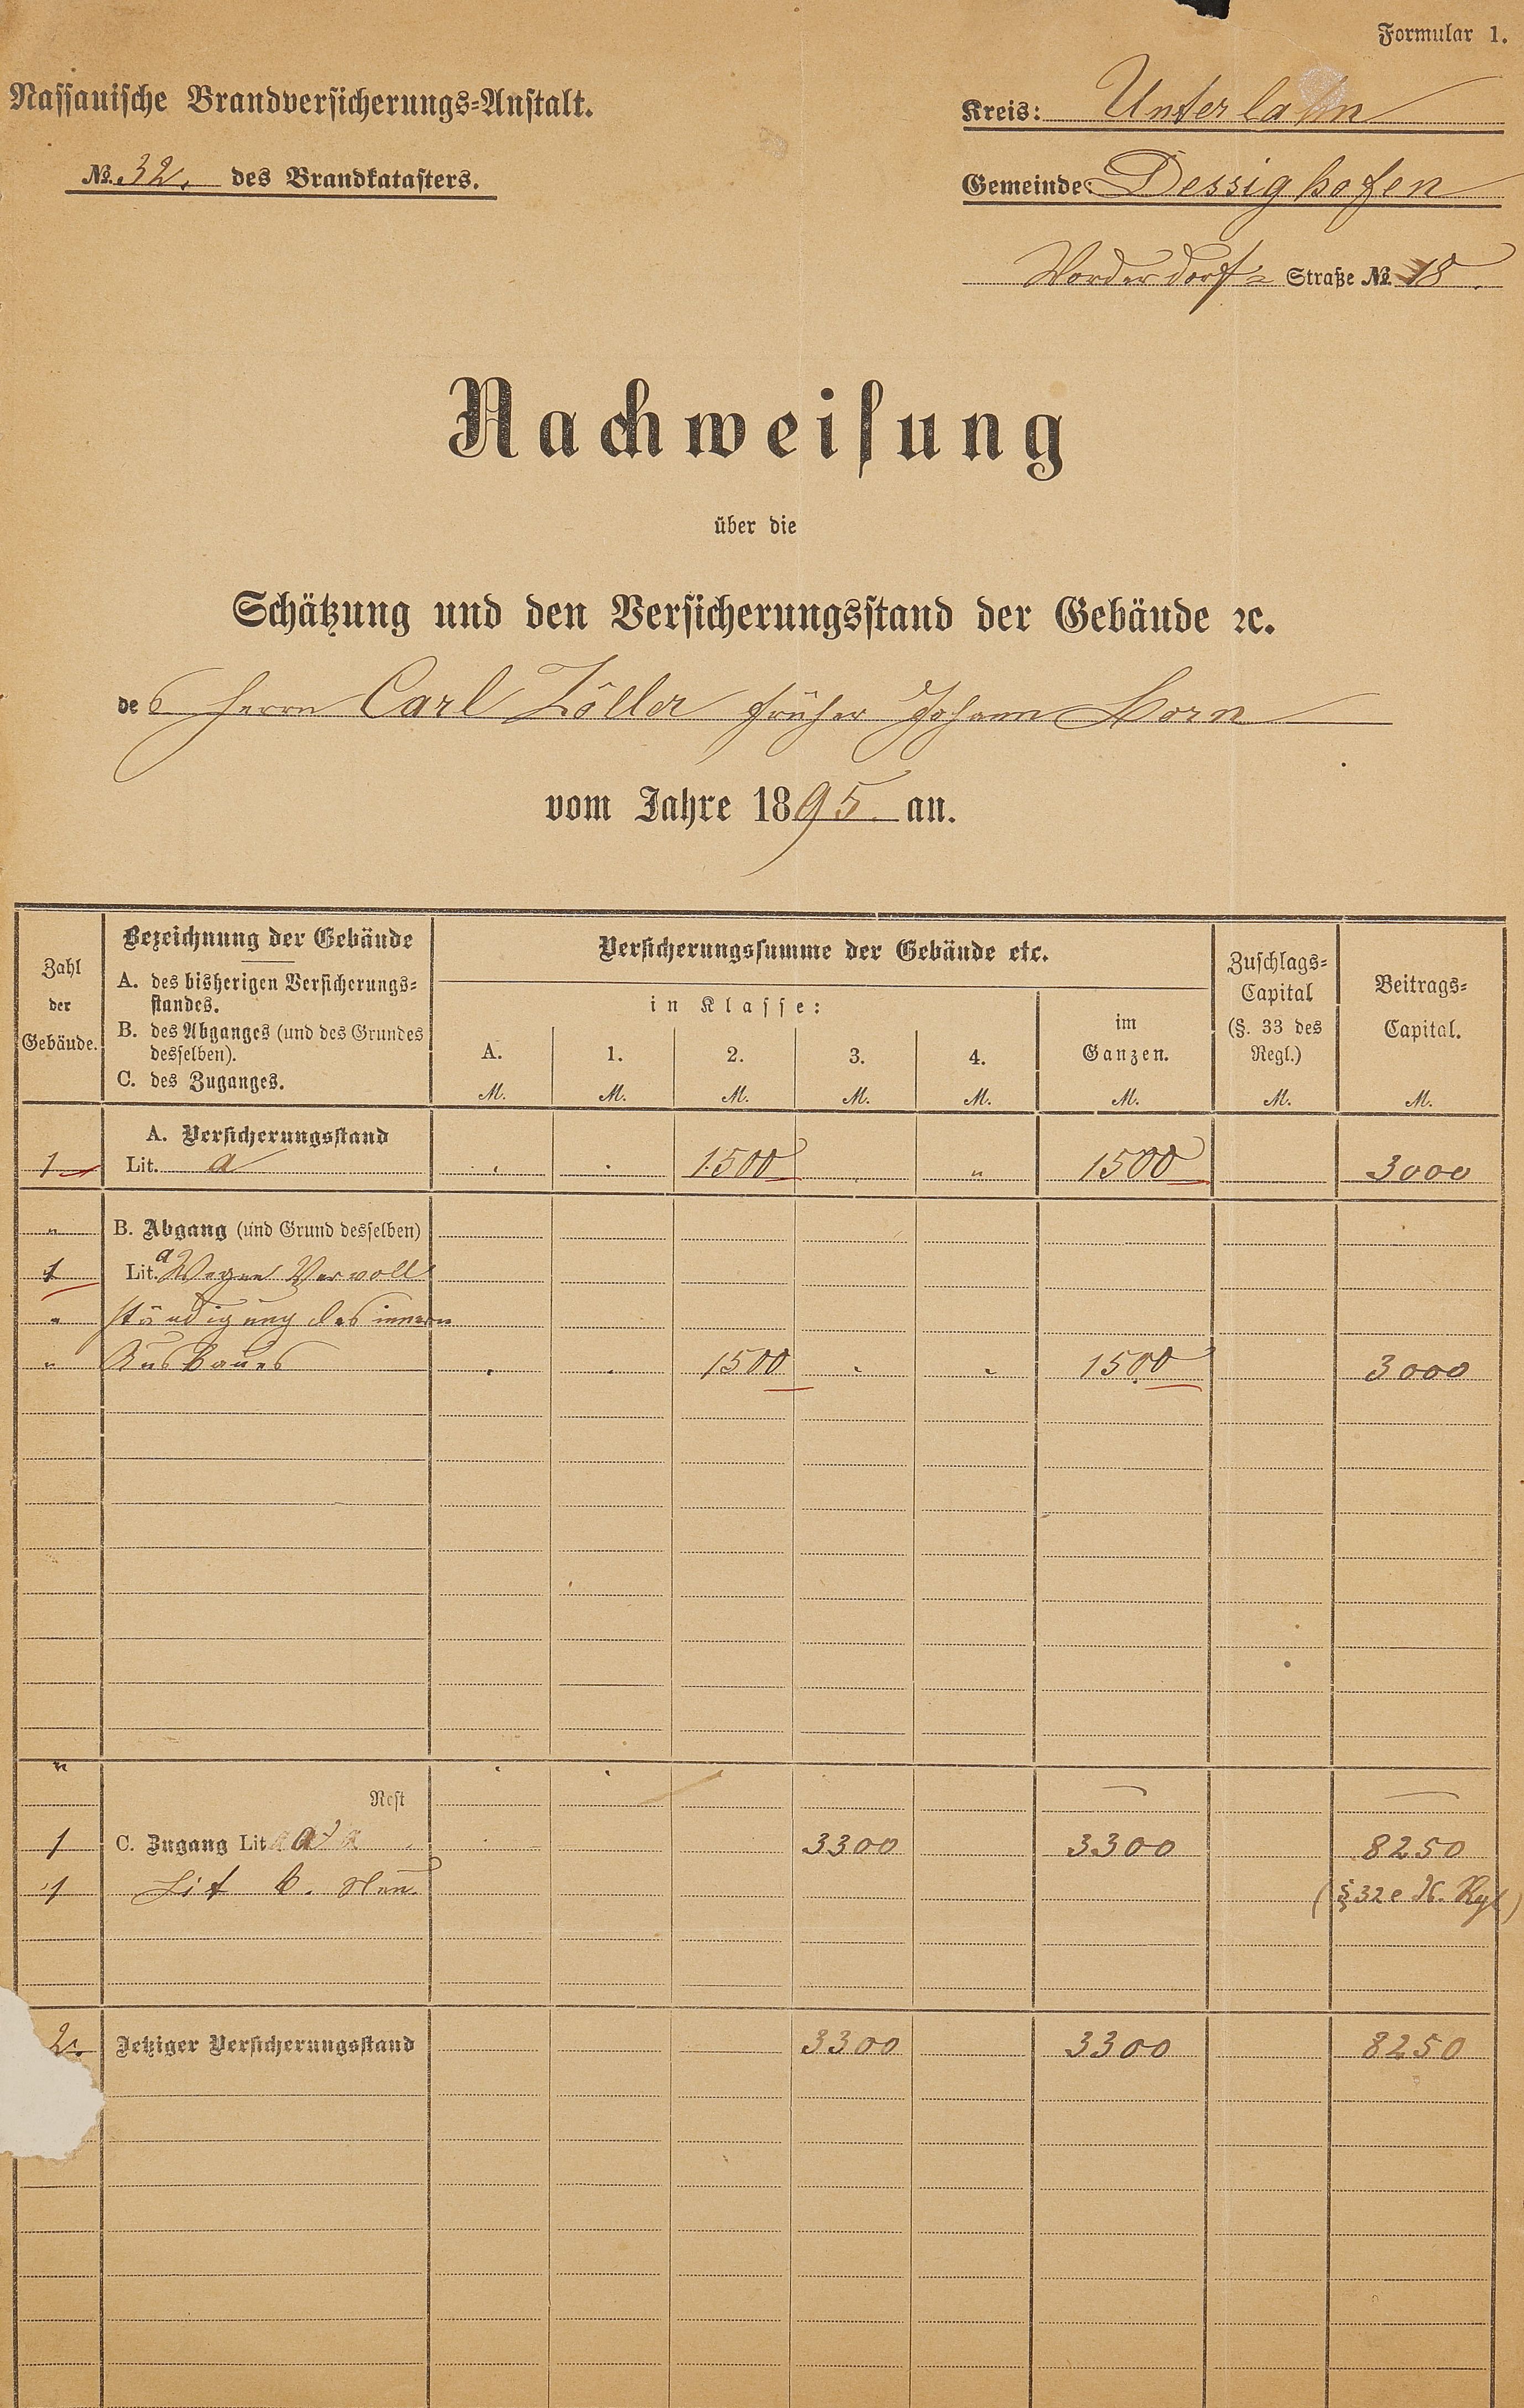 Formular 1.
Nassauische Brandversicherungs-Anstalt.
Kreis: Unterlahn
№. 32. des Brandkatasters.
Gemeinde: Dessighofen
Vorderdorf- Straße №. 18.
Nachweisung
über die
Schätzung und den Versicherungsstand der Gebäude ꝛc.
des Herrn Carl Zöller früher Johann Korn
vom Jahre 1895. an.
Zahl der Gebäude.
Bezeichnung der Gebäude
A. des bisherigen Versicherungs-
standes.
B. des Abganges (und des Grundes
desselben).
C. des Zuganges.
Versicherungssumme der Gebäude etc.
in Klasse:
A. 1. 2. 3. 4.
M. M. M. M. M.
im
Ganzen.
M.
Zuschlags-
Capital
(§. 33 des
Regl.)
M.
Beitrags-
Capital.
M.
A. Versicherungsstand
1 Lit. a . . 1500 „ 1500 3000
„ B. Abgang (und Grund desselben)
1 Lit. a Wegen Vervoll
„ ständigung des innern
„ Ausbaues . . 1500 „ „ 1500 3000
„
Rest — —
1 C. Zugang Lit a 3300 3300 8250
1 Lit b. Neu. (§ 32 e
2. Jetziger Versicherungsstand 3300 3300 8250